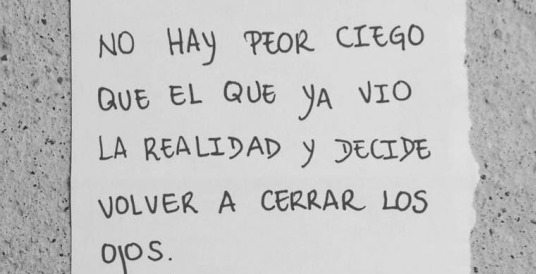 NO HAY PEOR CIEGO
QUE EL QUE YA VIO
LA REALIDAD Y DECIDE
VOLVER A CERRAR LOS
OJOS.